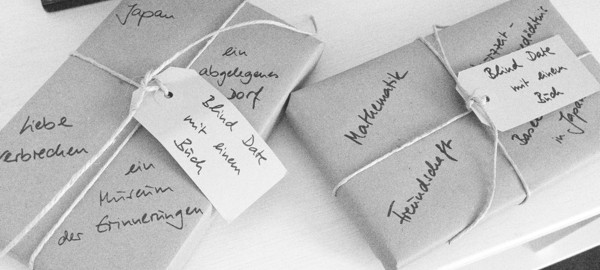 Japan
ein
abgelegenes
Dorf
Liebe
verbrechen
ein
Museum
der Erinnerungen
Blind Date
mit einem
Buch
Mathematik
Freundschaft
Blind Date
mit einem
Buch
in Japan